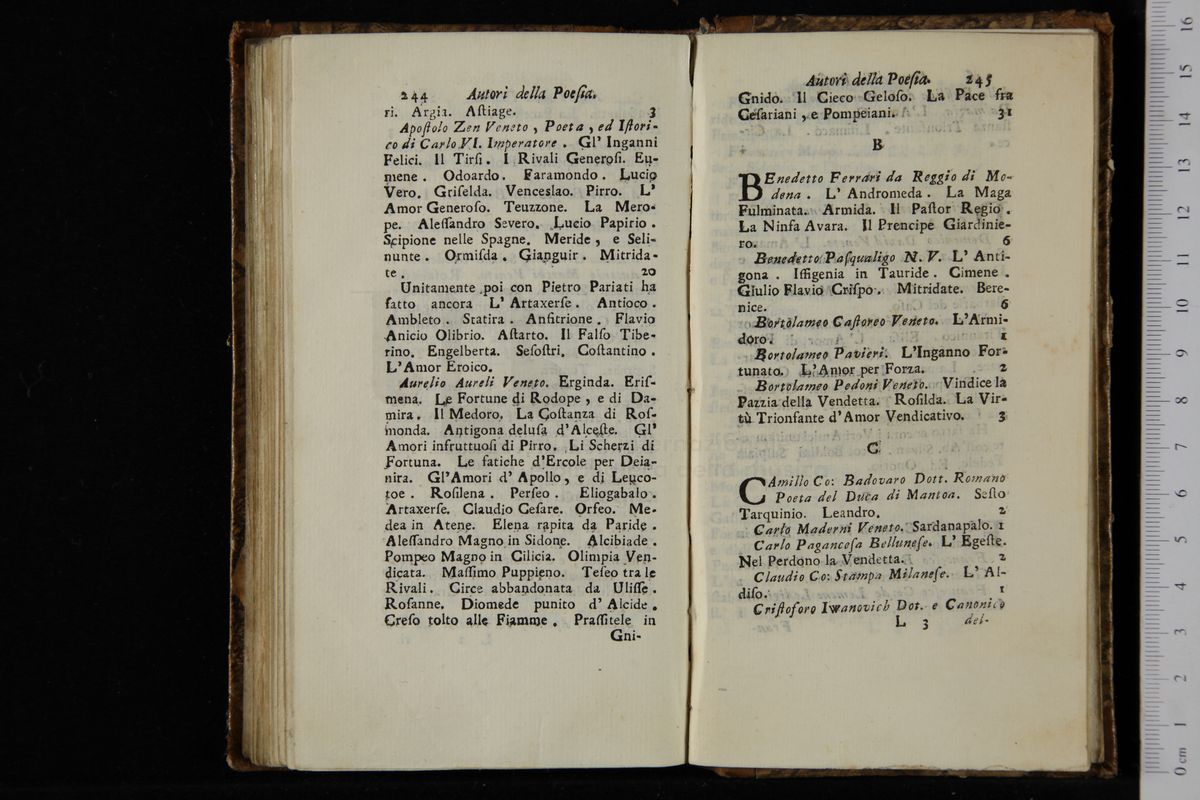 244 Autori della Poeſia.
ri. Argia. Aſtiage. 3
Apoſtolo Zen Veneto, Poeta, ed Iſtori-
co di Carlo VI. Imperatore. Gl' Inganni
Felici. Il Tirſi. I Rivali Generoſi. Eu-
mene. Odoardo. Faramondo. Lucio
Vero. Griſelda. Venceslao. Pirro. L'
Amor Generoſo. Teuzzone. La Mero-
pe. Aleſſandro Severo. Lucio Papirio.
Scipione nelle Spagne. Meride, e Seli-
nunte. Ormiſda. Gianguir. Mitrida-
te. 20
Unitamente poi con Pietro Pariati ha
fatto ancora L' Artaxerſe. Antioco.
Ambleto. Statira. Anfitrione. Flavio
Anicio Olibrio. Aſtarto. Il Falſo Tibe-
rino. Engelberta. Seſoſtri. Coſtantino.
L'Amor Eroico.
Aurelio Aureli Veneto. Erginda. Eriſ-
mena. Le Fortune di Rodope, e di Da-
mira. Il Medoro. La Coſtanza di Roſ-
monda. Antigona deluſa d'Alceſte. Gl'
Amori infruttuoſi di Pirro. Li Scherzi di
Fortuna. Le fatiche d'Ercole per Deia-
nira. Gl'Amori d' Apollo, e di Leuco-
toe. Roſilena. Perſeo. Eliogabalo.
Artaxerſe. Claudio Ceſare. Orfeo. Me-
dea in Atene. Elena rapita da Paride.
Aleſſandro Magno in Sidone. Alcibiade.
Pompeo Magno in Cilicia. Olimpia Ven-
dicata. Maſſimo Puppieno. Teſeo tra le
Rivali. Circe abbandonata da Uliſſe.
Roſanne. Diomede punito d' Alcide.
Creſo tolto alle Fiamme. Praſſitele in
Gni-
Autori della Poeſia. 245
Gnido. Il Cieco Geloſo. La Pace fra
Ceſariani, e Pompeiani. 31
B
BEnedetto Ferrari da Reggio di Mo-
dena. L' Andromeda. La Maga
Fulminata. Armida. Il Paſtor Regio.
La Ninfa Avara. Il Prencipe Giardinie-
ro. 6
Benedetto Paſqualigo N. V. L' Anti-
gona. Iffigenia in Tauride. Cimene.
Giulio Flavio Criſpo. Mitridate. Bere-
nice. 6
Bortolameo Caſtoreo Veneto. L'Armi-
doro. 1
Bortolameo Pavieri. L'Inganno For-
tunato. L'Amor per Forza. 2
Bortolameo Pedoni Veneto. Vindice la
Pazzia della Vendetta. Roſilda. La Vir-
tù Trionfante d'Amor Vendicativo. 3
C
CAmillo Co: Badovaro Dott. Romano
Poeta del Duca di Mantoa. Seſto
Tarquinio. Leandro. 2
Carlo Maderni Veneto. Sardanapalo. 1
Carlo Paganceſa Belluneſe. L' Egeſte.
Nel Perdono la Vendetta. 2
Claudio Co: Stampa Milaneſe. L' Al-
diſo. 1
Criſtoforo Iwanovich Dot. e Canonico
L 3 del-
0 cm 1 2 3 4 5 6 7 8 9 10 11 12 13 14 15 16